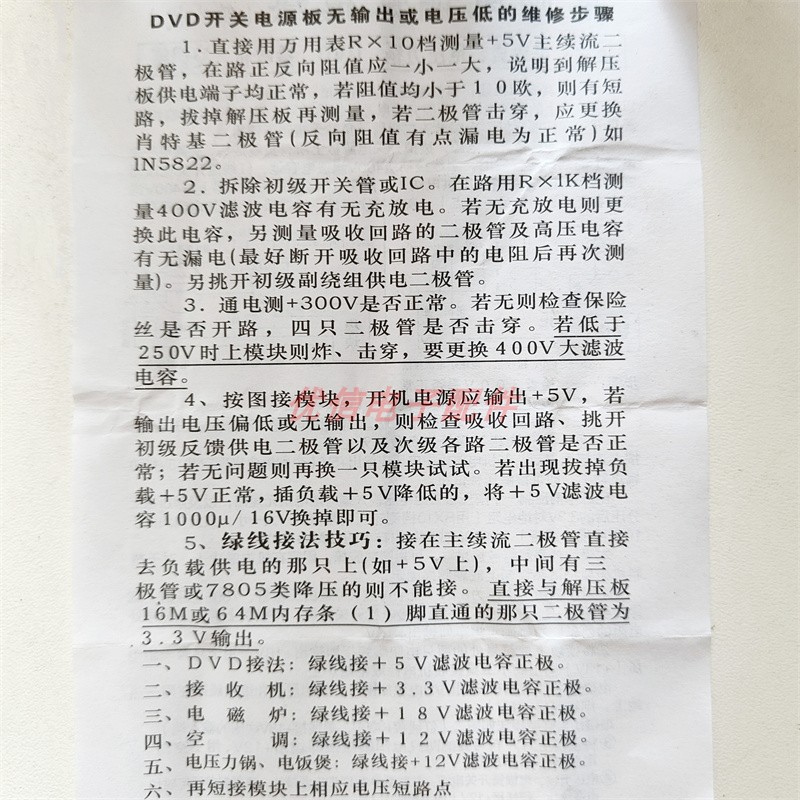 DVD开关电源板无输出或电压低的维修步骤
1.直接用万用表R×10档测量+5V主续流二
极管，在路正反向阻值应一小一大，说明到解压
板供电端子均正常，若阻值均小于10欧，则有短
路，拔掉解压板再测量，若二极管击穿，应更换
肖特基二极管(反向阻值有点漏电为正常)如
1N5822。
2．拆除初级开关管或IC。在路用R×1K档测
量400V滤波电容有无充放电。若无充放电则更
换此电容，另测量吸收回路的二极管及高压电容
有无漏电(最好断开吸收回路中的电阻后再次测
量)。另挑开初级副绕组供电二极管。
3．通电测+300V是否正常。若无则检查保险
丝是否开路，四只二极管是否击穿。若低于
250V时上模块则炸、击穿，要更换400V大滤波
电容。
4、按图接模块，开机电源应输出+5V，若
输出电压偏低或无输出，则检查吸收回路、挑开
初级反馈供电二极管以及次级各路二极管是否正
常；若无问题则再换一只模块试试。若出现拔掉负
载+5V正常，插负载+5V降低的，将+5V滤波电
容1000μ/16V换掉即可。
5、绿线接法技巧：接在主续流二极管直接
去负载供电的那只上(如+5V上)，中间有三
极管或7805类降压的则不能接。直接与解压板
16M或64M内存条（1）脚直通的那只二极管为
3.3V输出。
一、DVD接法：绿线接+5V滤波电容正极。
二、接收机：绿线接+3.3V滤波电容正极。
三、电磁炉：绿线接+18V滤波电容正极。
四、空调：绿线接+12V滤波电容正极。
五、电压力锅、电饭煲：绿线接+12V滤波电容正极。
六、再短接模块上相应电压短路点
优信电子配件